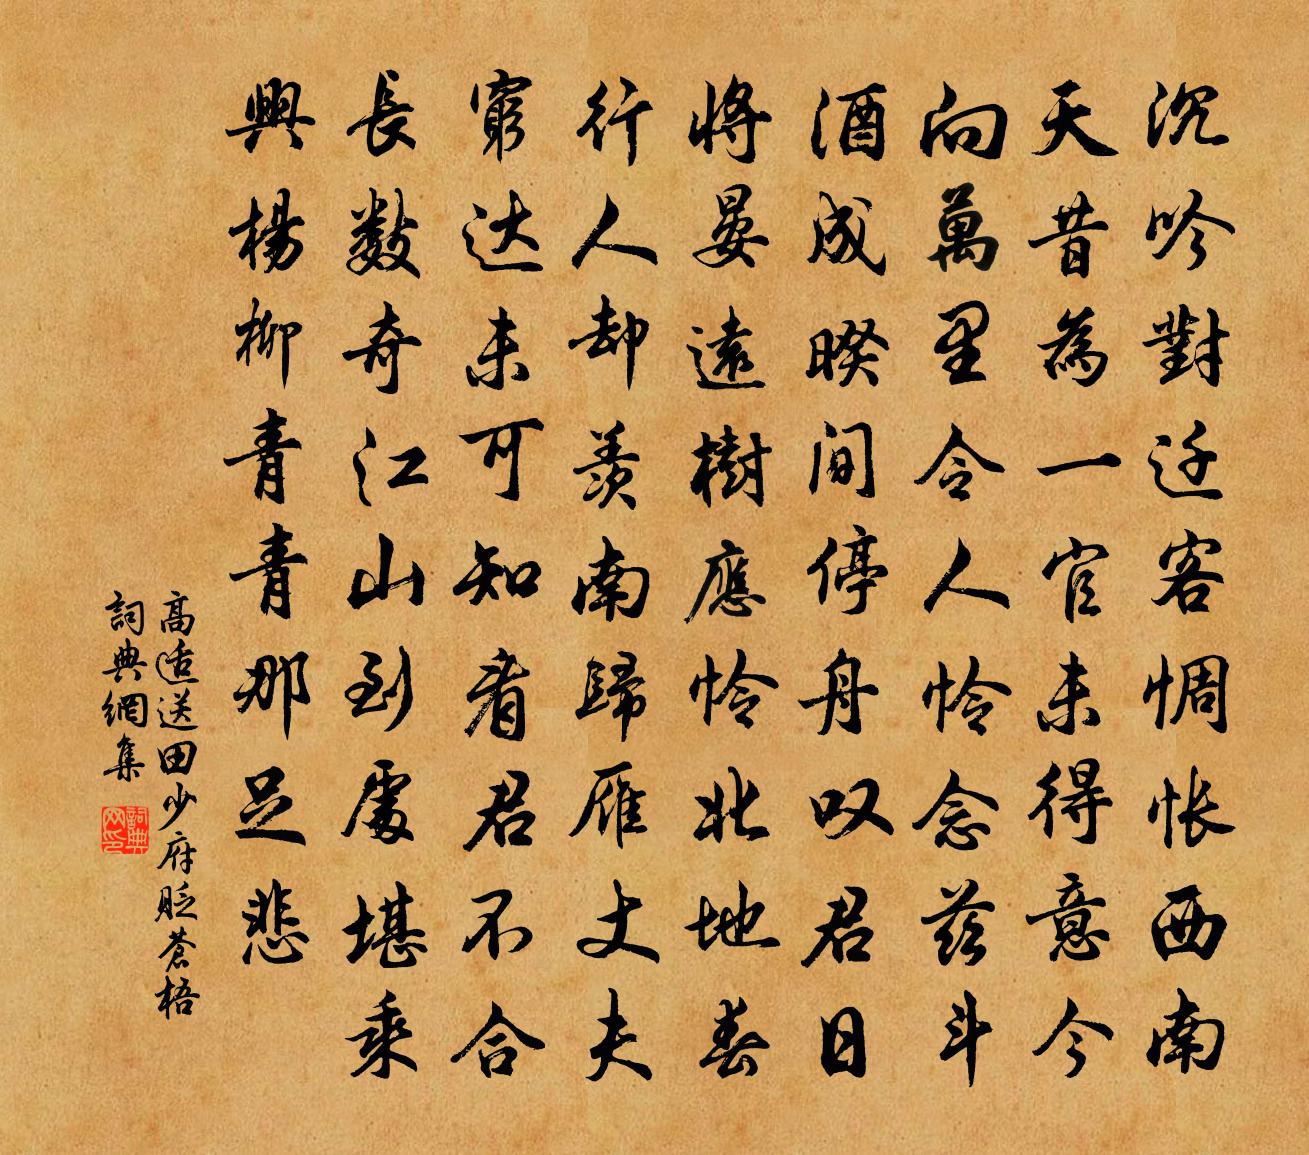 沉吟對迁客惆怅西南
天昔為一官未得意今
向萬里令人怜念茲斗
酒成暌间停舟叹君日
將晏遠樹應怜北地春
行人却羨南歸雁丈夫
窮达未可知看君不合
長數奇江山到處堪乘
興楊柳青青那足悲
高适送田少府貶蒼梧
詞典網集
詞典网印